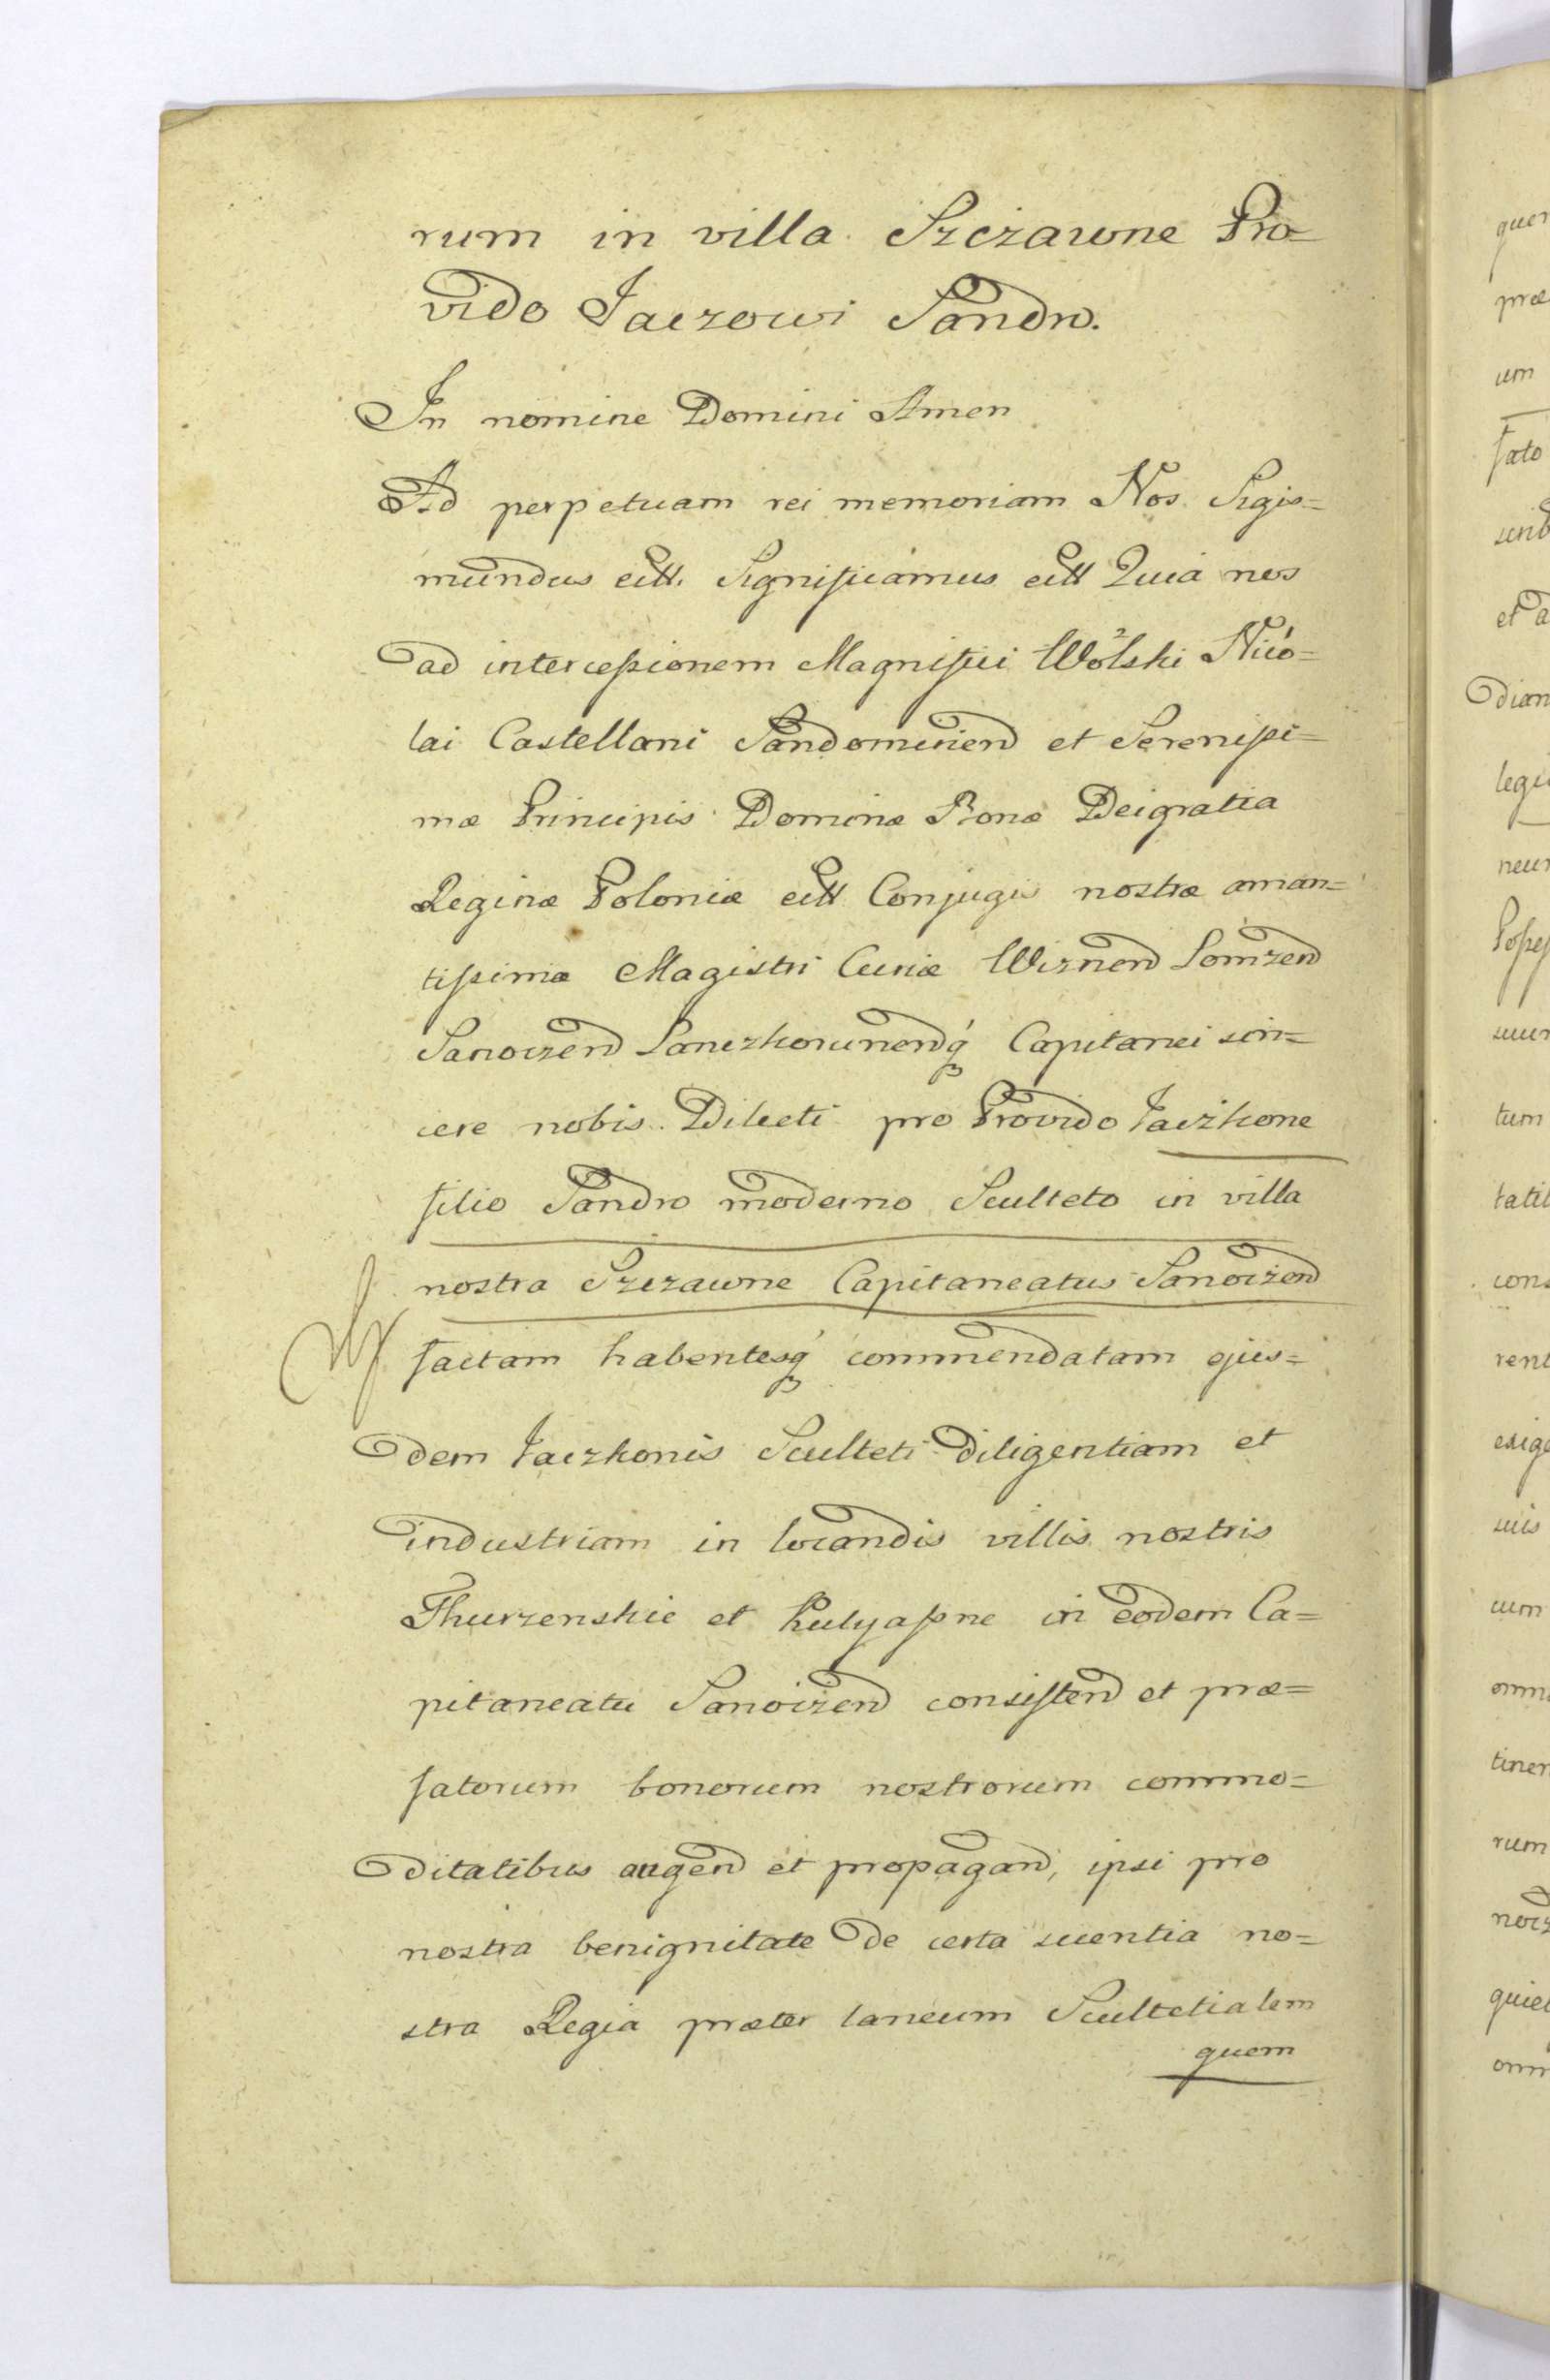 rum in villa Szczawne Pro=
vido Jaczowi Sandro.
In nomine Domini Amen
Ad perpetuam rei memoriam Nos Sigis=
mundus ett. Significamus ett Quia nos
ad intercessionem Magnifici Wolski Nico=
lai Castellani Sandomirien et Serenissi=
mæ Principis Dominæ Bonæ Dei gratia
Reginæ Poloniæ ett Conjugis nostræ aman=
tissimæ Magistri Curiæ Wiznen Lomzen
Sanoczen Lanczkorunenq Capitanei sin=
cere nobis Dilecti pro Provido Jaczkone
filio Sandro moderno Sculteto in villa
nostra Szczawne Capitaneatus Sanoczen
factam habentesq commendatam ejus=
dem Jaczkonis Sculteti diligentiam et
industriam in locandis villis nostris
Thurzenskie et Kulyassne in eodem Ca=
pitaneatu Sanoczen consisten et præ=
fatorum bonorum nostrorum commo=
ditatibus augen et propagan, ipsi pro
nostra benignitate de certa scientia no=
stra Regia præter laneum Scultetialem
quem
quer
præ
um
fato
scrib
et a
dian
legi
neur
Posses
suur
tum
tatil
cons
rent
exige
suis
cum
omn
tiner
rum
nocz
quiet
omn